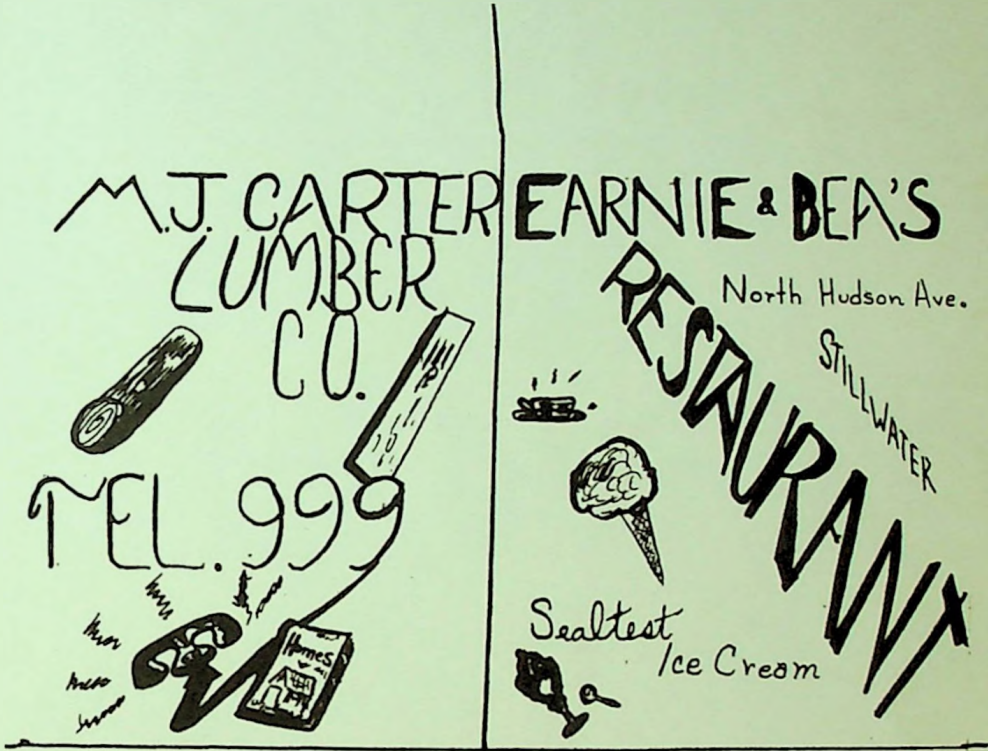 M.J. CARTER
LUMBER
CO.
TEL. 999
Homes
EARNIE & BEA'S
RESTAURANT
North Hudson Ave.
STILLWATER
Sealtest
Ice Cream